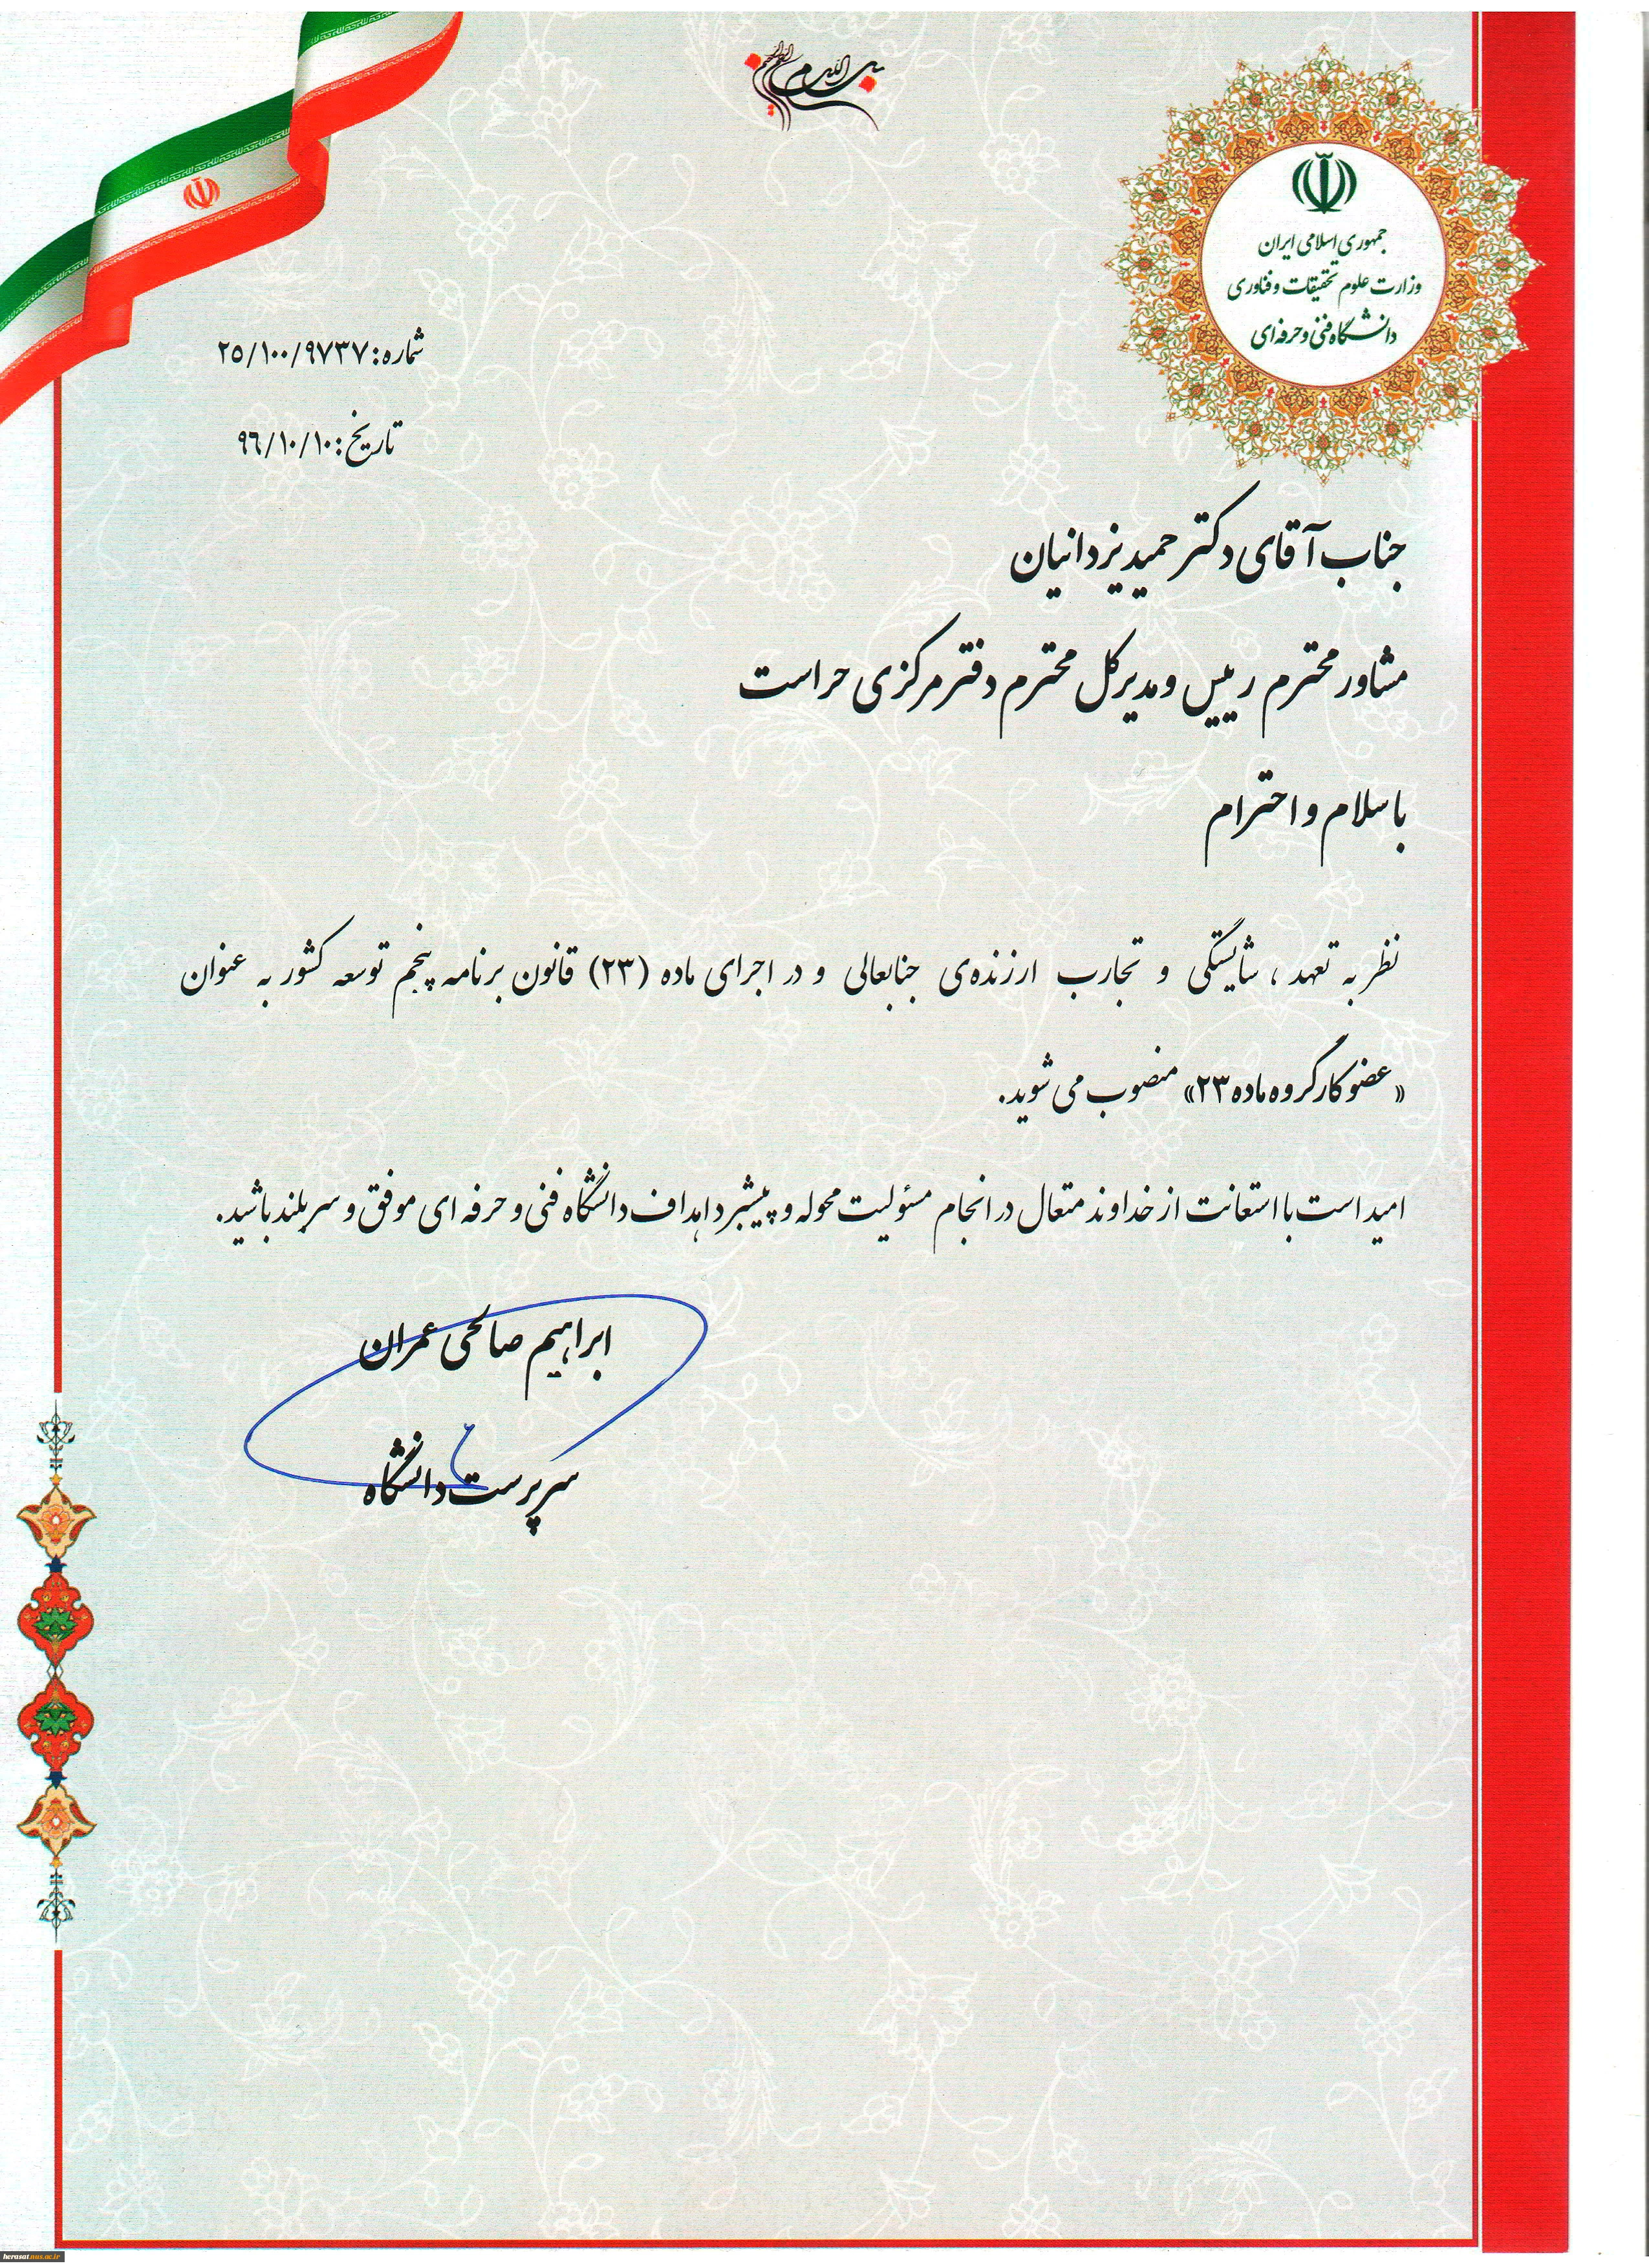 بسم الله الرحمن الرحیم
جمهوری اسلامی ایران
وزارت علوم تحقیقات و فناوری
دانشگاه فنی و حرفه‌ای
شماره: ۲۵/۱۰۰/۹۷۳۷
تاریخ: ۹۶/۱۰/۱۰
جناب آقای دکتر حمید یزدانیان
مشاور محترم رییس و مدیر کل محترم دفتر مرکزی حراست
با سلام و احترام
نظر به تعهد، شایستگی و تجارب ارزنده‌ی جنابعالی و در اجرای ماده (۲۳) قانون برنامه پنجم توسعه کشور به عنوان
«عضو کارگروه ماده ۲۳» منصوب می شوید.
امید است با استعانت از خداوند متعال در انجام مسئولیت محوله و پیشبرد اهداف دانشگاه فنی و حرفه ای موفق و سربلند باشید.
ابراهیم صالحی عمران
سرپرست دانشگاه
herasat.nus.ac.ir